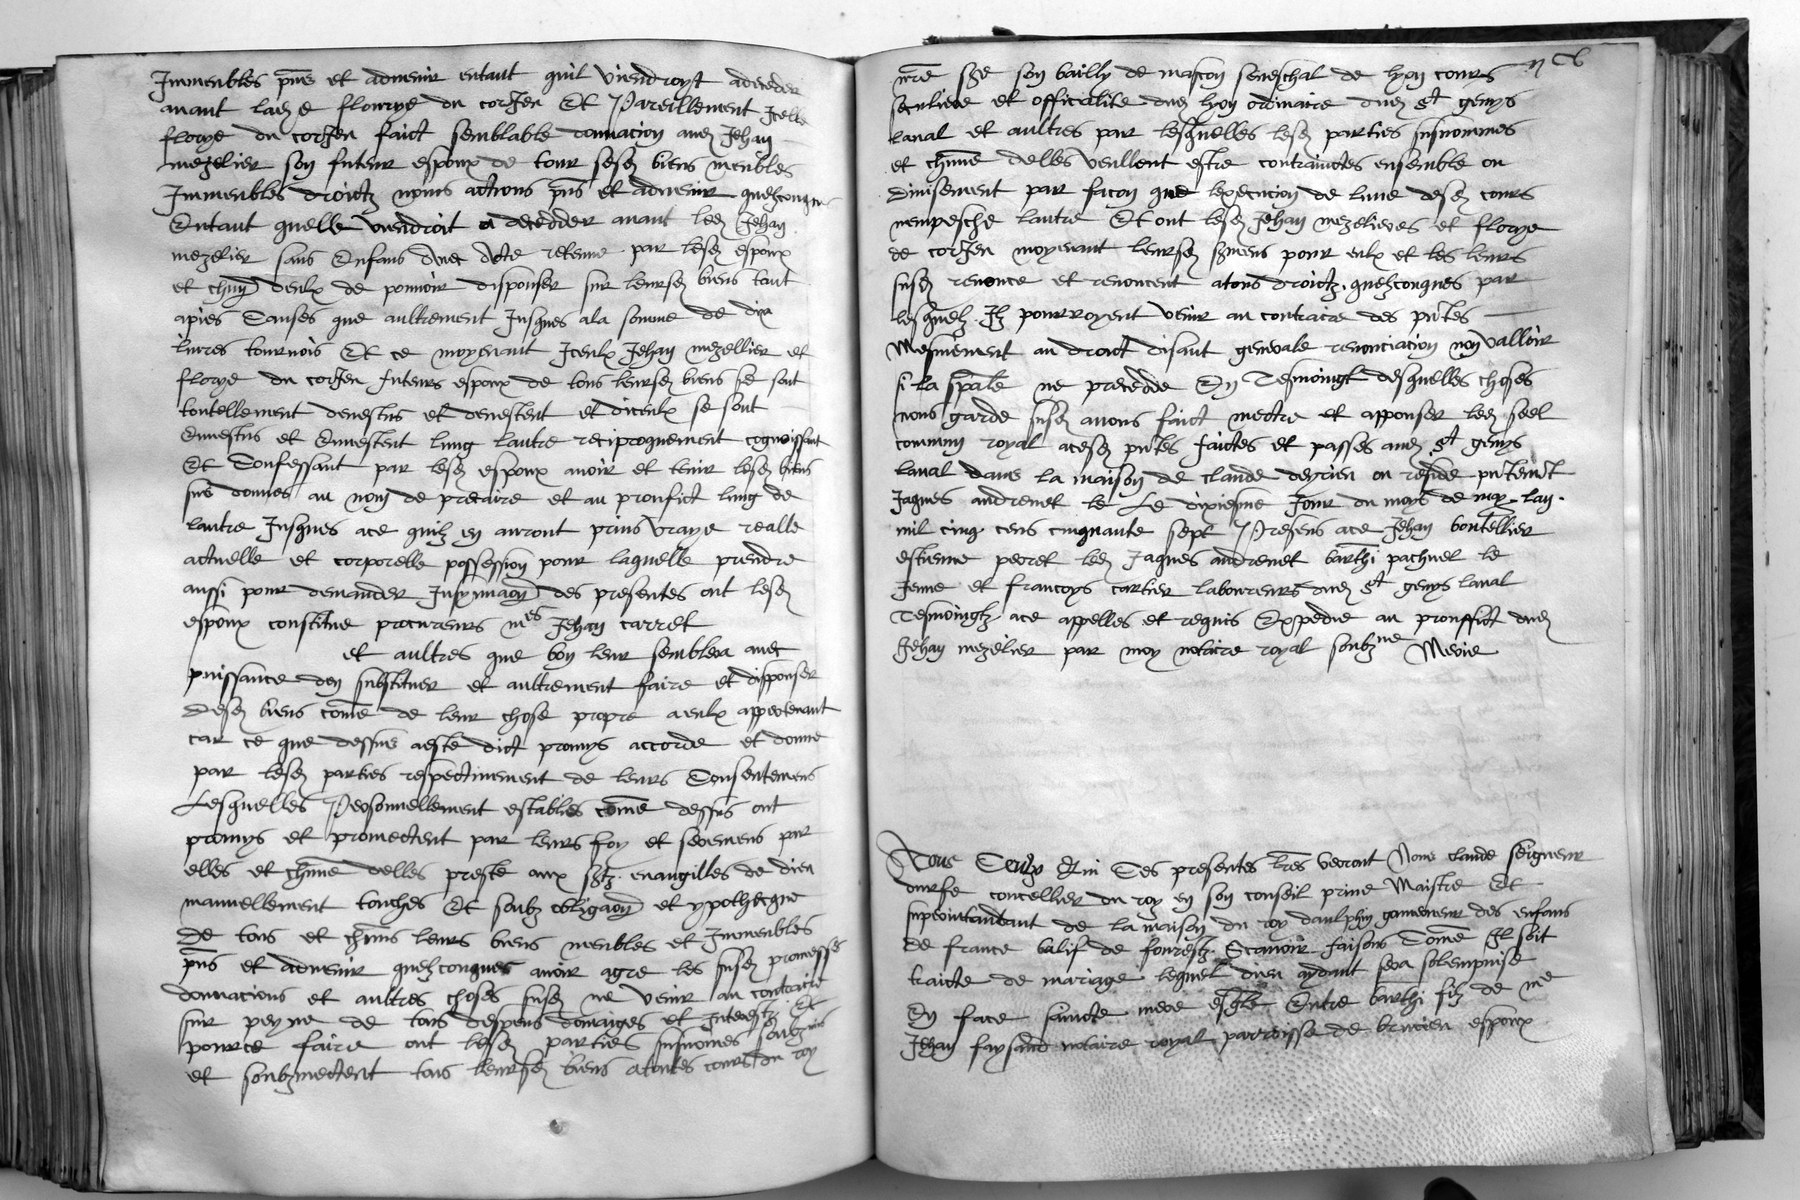 Immeubles pns et advenir entant quil viendroyt adceder
avant lade florye du corsen Et Pareillement Icelle
florye du corsen faict semblable donnacion aud Jehan
mezelier son futeur espoux de tour sesd biens meubles
Immeubles droictz noms actions pns et advenir quelzconques
Entant quelle viendroit a decedder avant led Jehan
mezelier sans Enfans avec dote retenue par lesd espoux
et chun deulx de pouvoir disposer sur leursd biens tant
apies Causes que aultrement Jusques ala somme de dix
livres tournois Et ce moyenant Iceulx Jehan mezellier et
florye du corsen futeurs espoux de tous leursd biens se sont
toutellement devestus et devestent et diceulx se sont
Envestus et Envestent lung lautre reciproquement cognoissant
Et Confessant par lesd espoux avoir et tenir lesd biens
sus donnes au nom de precaire et au prouffict lung de
lautre Jusques ace quilz en auront prins vraye realle
actuelle et corporelle possession pour laquelle prendre
aussi pour demander Insynuaon des presentes ont lesd
espoux constitue procureurs mes Jehan carret
et aultres que bon leur semblera avec
puissance den substituer et aultrement faire et disposer
Desd biens come de leur chose propre aeulx appertenant
car ce que dessus aeste dict promys accorde et donne
par lesd parties respectivement de leurs Consentemens
Lesquelles Personnellement establies come dessus ont
promys et promectent par leurs foy et seremens par
elles et chune delles preste aux sztz evangilles de dieu
manuellement touches Et soubz obligaon et ypothecque
De tous et chuns leurs biens meubles et Immeubles
pns et advenir quelzconques avoir agre les susd promesses
donnacions et aultres choses susd ne venir au contraire
sur peyne de tous despens domaiges et Interestz Et
pource faire ont lesd parties susnomes soubzmis
et soubzmectent tous leursd biens atoutes cours du roy
nre sre son bailly de mascon seneschal de lyon cours
seculiere et officialite dud lyon ordinaire dud st genys
laval et aultres par lesquelles lesd parties susnommes
et chune delles veullent estre contrainctes ensemble ou
divisement par facon que lexecucion de lune desd cours
nempesche lautre Et ont lesd Jehan mezelieres et florye
de corsen moyenant leursd sermens pour eulx et les leurs
susd renonce et renoncent atous droictz quelzconques par
lesquelz Ilz pourroyent venir au contraire des pntes
Mesmement au droict disant generale renonciacion non valloir
si la spale ne precedde En Tesmoingt desquelles choses
nous garde susd avons faict mectre et apposer led seel
commun royal acesd pntes faictes et passes aud st genys
laval dans la maison de claude deyrieu ou reside pntemt
Jaques andrenet le Le dixiesme Jour du moys de may lan
mil cinq cens cinquante sept Presens ace Jehan boutellier
estienne peeret led Jaques andrenet barthi pachuel le
Jenne et francoys cartier laboureurs dud st genys laval
Tesmoingtz ace appelles et requis Expedie au prouffict dud
Jehan mezelier par moy notaire royal soubzne Mevie
A Tous Ceulx Qui Ces presentes lres verront Nous claude seigneur
durfe concellier du roy en son conseil prive Maistre Et
superintandant de la maison du roy daulphin gouverneur des enfans
de france balif de fourestz Scavoir faisons Come Il soit
traicte de mariage lequel dieu aydant sera solempnise
En face saincte mere esglise Entre barthi filz de me
Jehan faysand notaire royal parroisse de brucien espoux